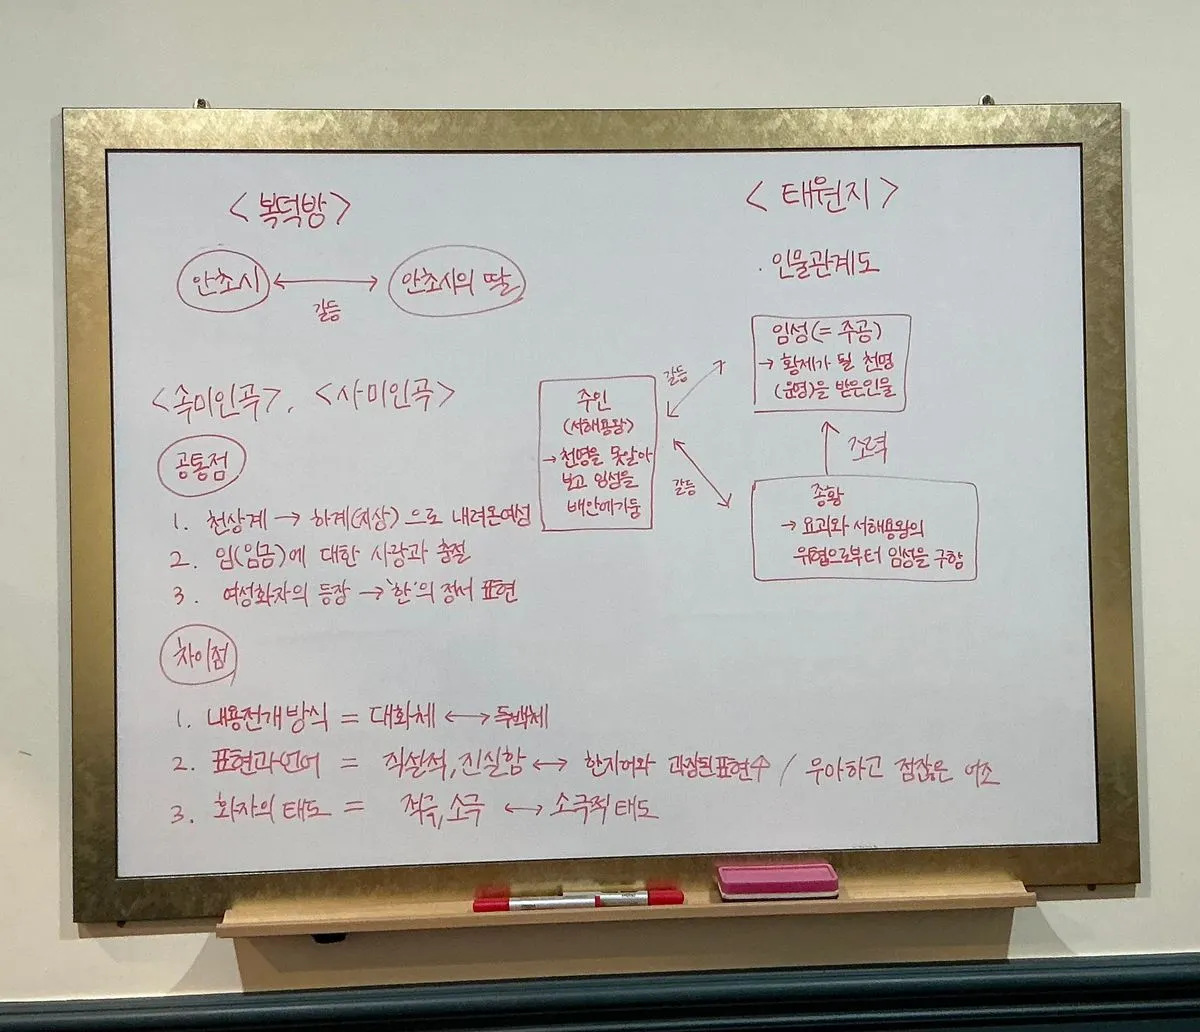 <복덕방>
안초시 ↔ 안초시의 딸
갈등
<속미인곡>, <사미인곡>
공통점
1. 천상계 → 하계(지상)으로 내려온여성
2. 임(임금)에 대한 사랑과 충절
3. 여성화자의 등장 → '한'의 정서 표현
차이점
1. 내용전개방식 = 대화체 ↔ 독백체
2. 표현과언어 = 직설적, 진실함 ↔ 한자어와 과장된표현↑ / 우아하고 점잖은 어조
3. 화자의 태도 = 적극, 소극 ↔ 소극적 태도
<태원지>
· 인물관계도
임성(= 주공)
→ 황제가 될 천명
(운명)을 받은인물
갈등
주인
(서해용왕)
→ 천명을 못알아
보고 임성을
배안에가둠
갈등
조력
종황
→ 요괴와 서해용왕의
위협으로부터 임성을 구함